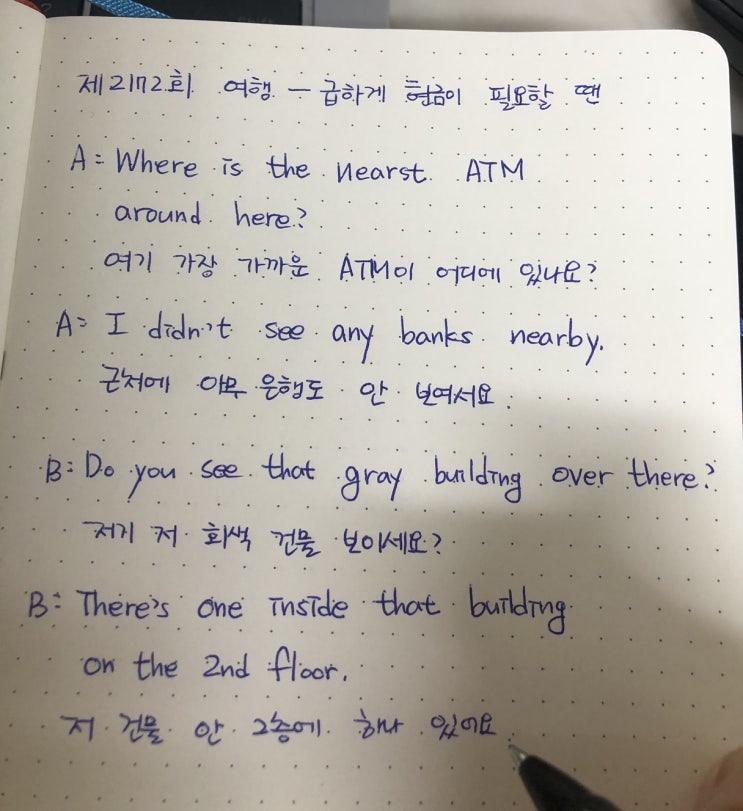 제2172회 여행 - 급하게 현금이 필요할 땐
A: Where is the nearst ATM
around here?
여기 가장 가까운 ATM이 어디에 있나요?
A: I didn't see any banks nearby.
근처에 아무 은행도 안 보여서요.
B: Do you see that gray building over there?
저기 저 회색 건물 보이세요?
B: There's one inside that building
on the 2nd floor.
저 건물 안 2층에 하나 있어요.